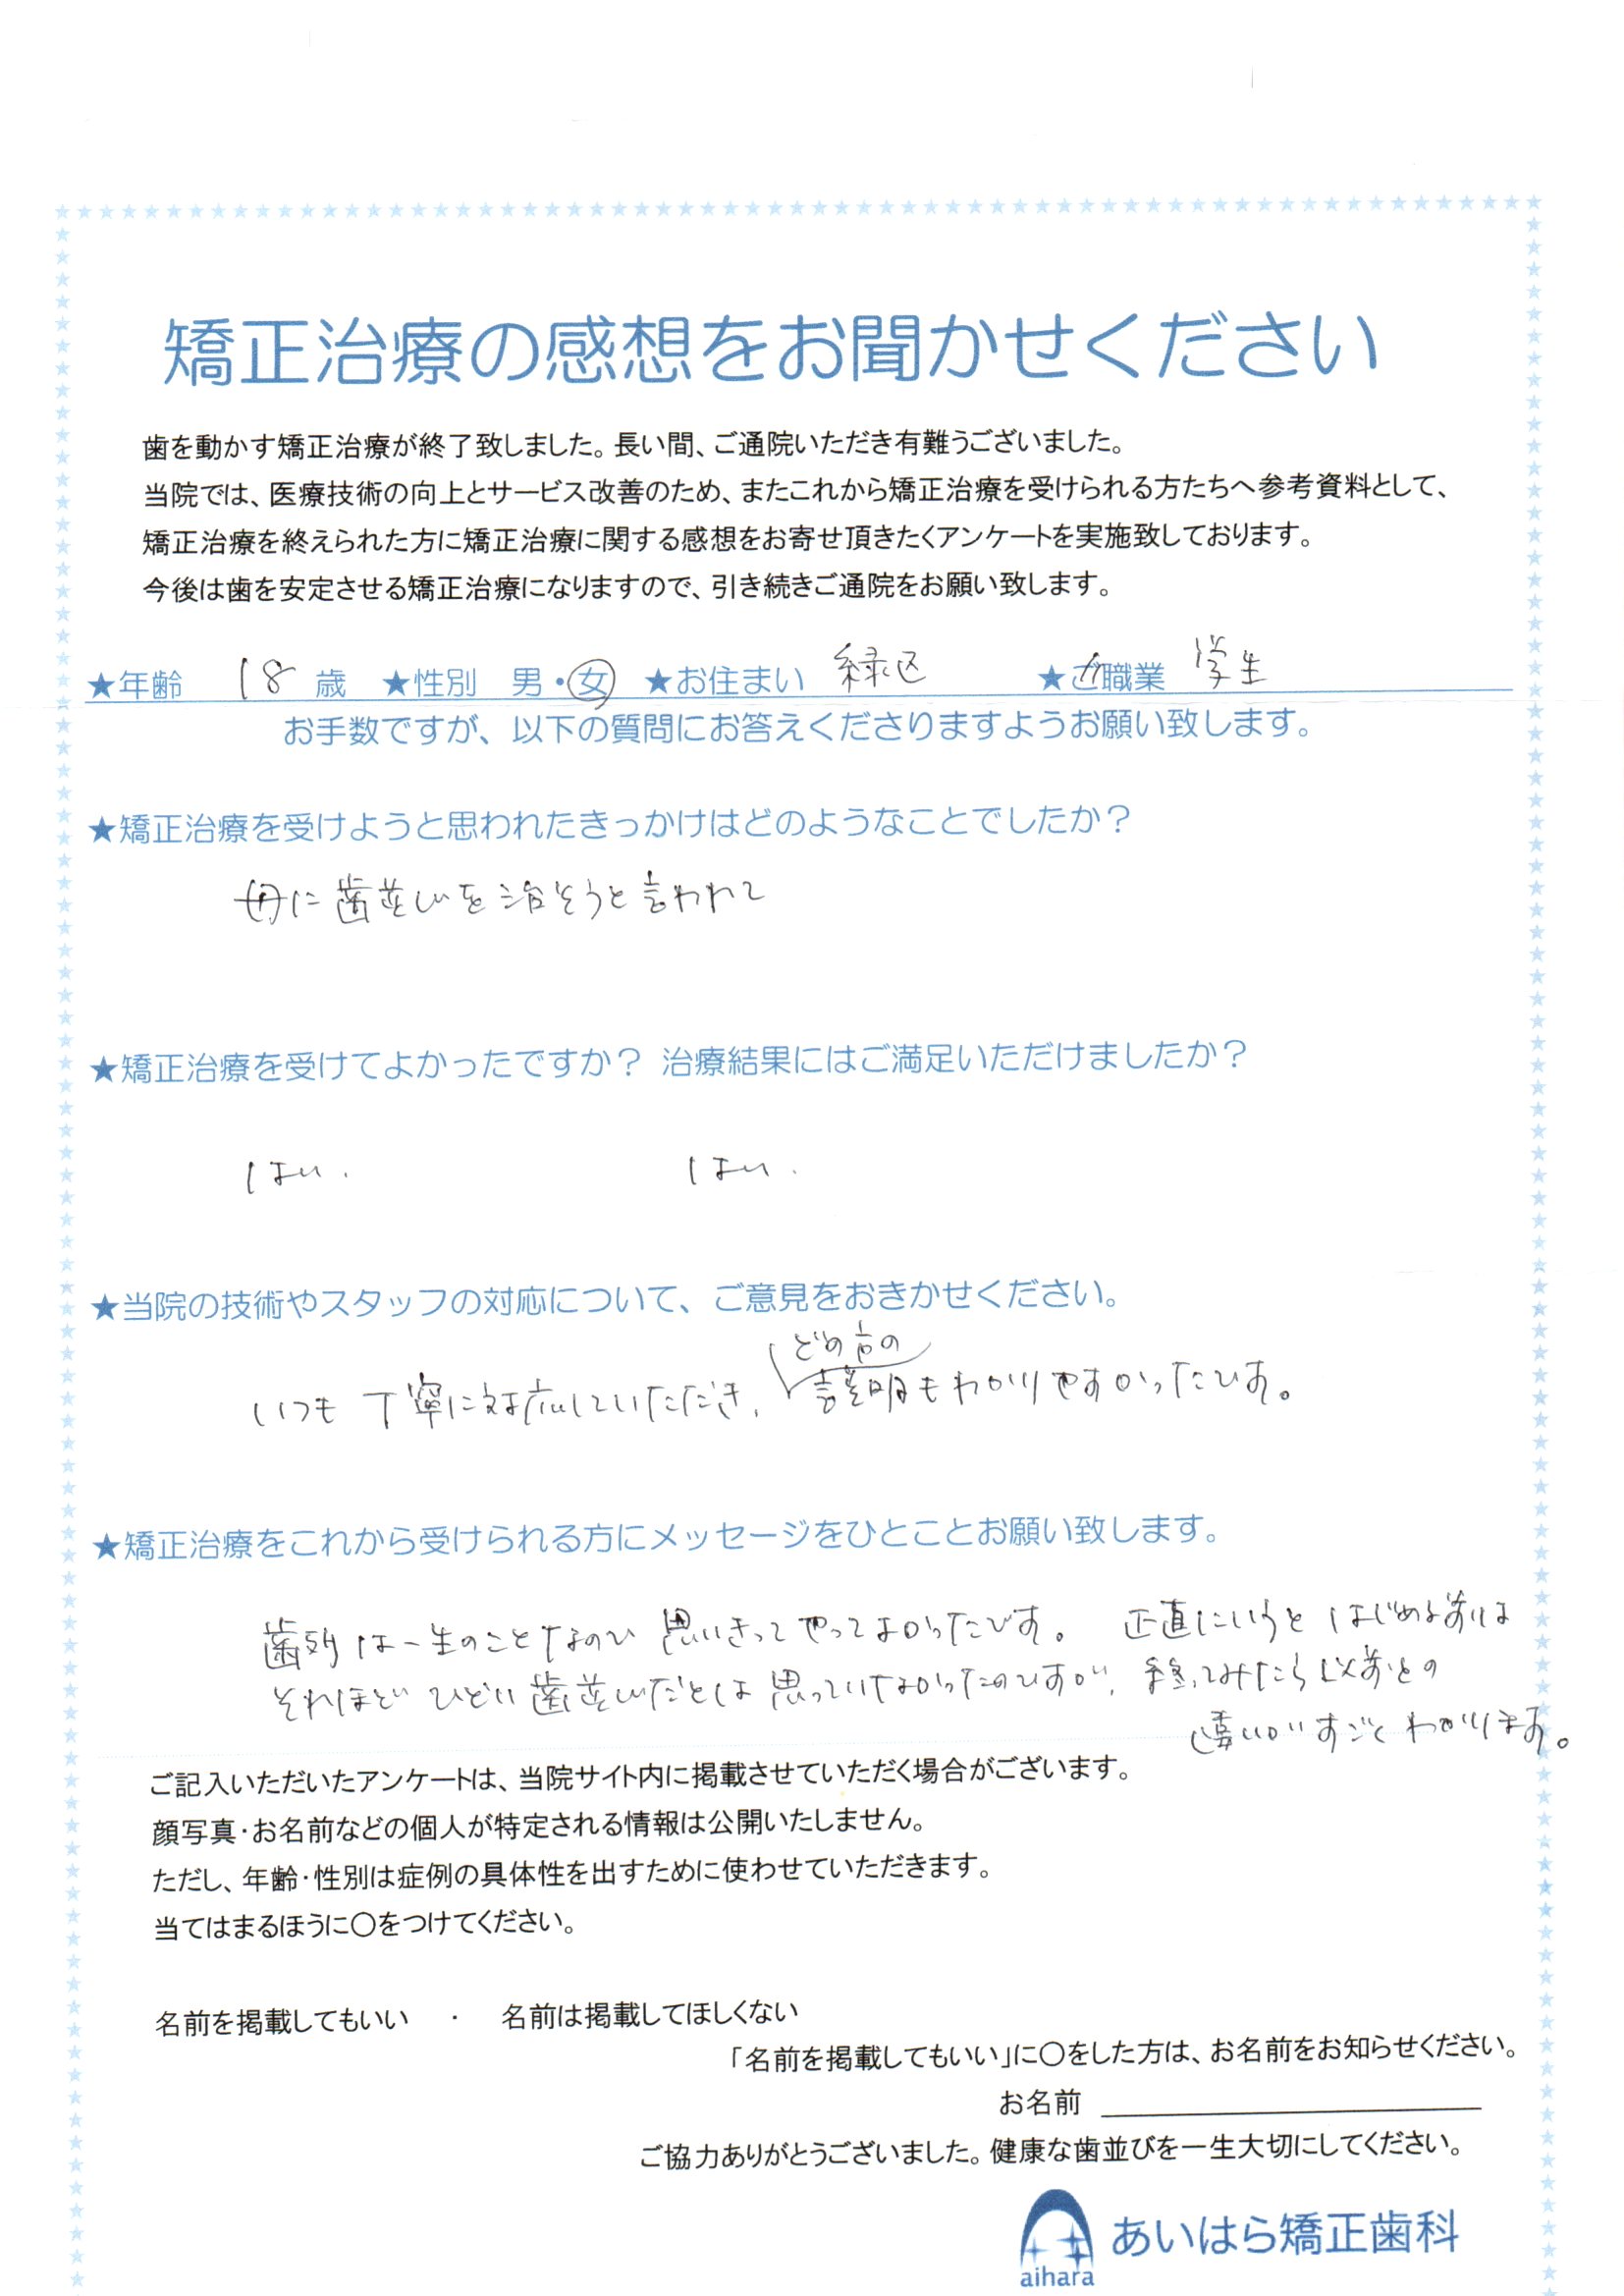 矯正治療の感想をお聞かせください
歯を動かす矯正治療が終了致しました。長い間、ご通院いただき有難うございました。
当院では、医療技術の向上とサービス改善のため、またこれから矯正治療を受けられる方たちへ参考資料として、
矯正治療を終えられた方に矯正治療に関する感想をお寄せ頂きたくアンケートを実施致しております。
今後は歯を安定させる矯正治療になりますので、引き続きご通院をお願い致します。
★年齢 18 歳 ★性別 男・女 ★お住まい 緑区 ★ご職業 学生
お手数ですが、以下の質問にお答えくださりますようお願い致します。
★矯正治療を受けようと思われたきっかけはどのようなことでしたか？
母に歯並びを治そうと言われて
★矯正治療を受けてよかったですか？ 治療結果にはご満足いただけましたか？
はい. はい.
★当院の技術やスタッフの対応について、ご意見をおきかせください。
どの方の
いつも丁寧に対応していただき、説明もわかりやすかったです。
★矯正治療をこれから受けられる方にメッセージをひとことお願い致します。
歯列は一生のことなので思いきってやってよかったです。 正直にいうとはじめる前は
それほどひどい歯並びだとは思っていなかったのですが、終ってみたら以前との
違いがすごくわかります。
ご記入いただいたアンケートは、当院サイト内に掲載させていただく場合がございます。
顔写真・お名前などの個人が特定される情報は公開いたしません。
ただし、年齢・性別は症例の具体性を出すために使わせていただきます。
当てはまるほうに〇をつけてください。
名前を掲載してもいい ・ 名前は掲載してほしくない
「名前を掲載してもいい」に〇をした方は、お名前をお知らせください。
お名前
ご協力ありがとうございました。健康な歯並びを一生大切にしてください。
あいはら矯正歯科
aihara